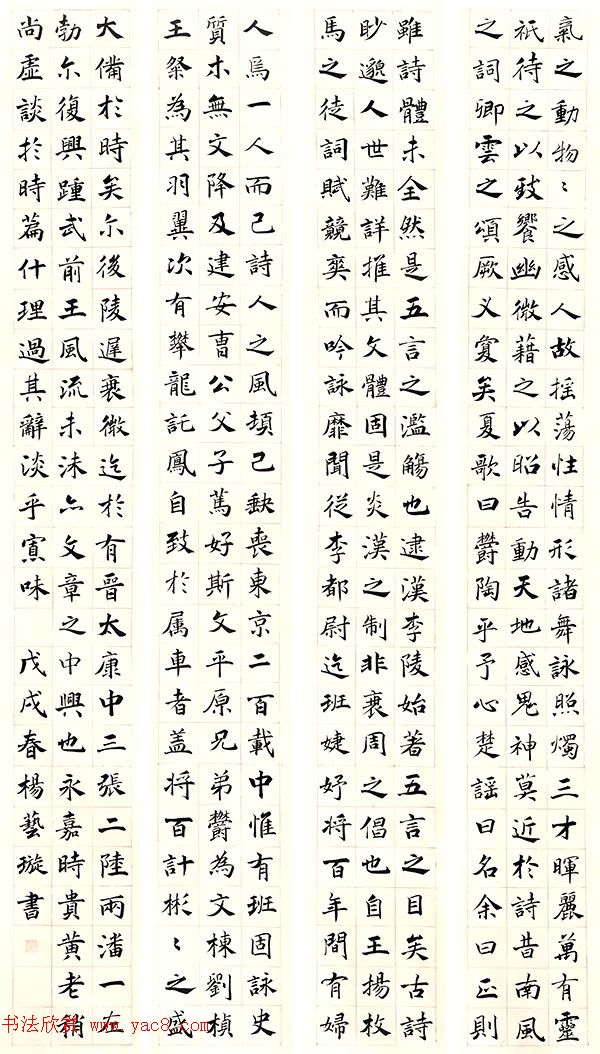 氣之動物〻之感人故搖蕩性情形諸舞詠照燭三才暉麗萬有靈
祇待之以致饗幽微藉之以昭告動天地感鬼神莫近於詩昔南風
之詞卿雲之頌厥义敻矣夏歌曰鬱陶乎予心楚謠曰名余曰正則
雖詩體未全然是五言之濫觴也逮漢李陵始著五言之目矣古詩
眇邈人世難詳推其文體固是炎漢之制非衰周之倡也自王揚枚
馬之徒詞賦競爽而吟詠靡聞從李都尉迄班婕妤將百年間有婦
人焉一人而已詩人之風頓已缺喪東京二百載中惟有班固詠史
質木無文降及建安曹公父子篤好斯文平原兄弟鬱為文棟劉楨
王粲為其羽翼次有攀龍託鳳自致於属車者蓋將百計彬〻之盛
大備於時矣尓後陵遲衰微迄於有晉太康中三張二陸兩潘一左
勃尓復興踵武前王風流未沬亦文章之中興也永嘉時貴黄老稍
尚虛談於時篇什理過其辭淡乎寡味 戊戌春楊藝璇書
书法欣赏 www.yac8.com